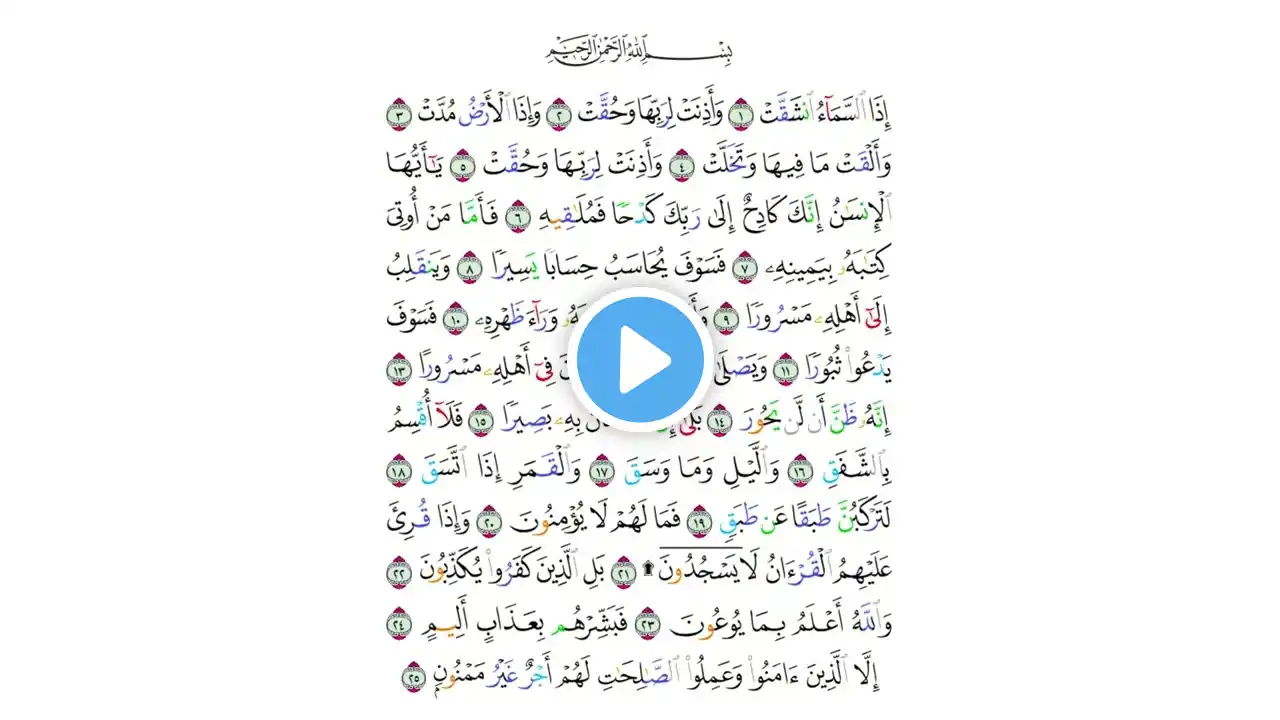 بِسْمِ اللَّهِ الرَّحْمَٰنِ الرَّحِيمِ
إِذَا ٱلسَّمَآءُ ٱنشَقَّتْ ١ وَأَذِنَتْ لِرَبِّهَا وَحُقَّتْ ٢ وَإِذَا ٱلْأَرْضُ مُدَّتْ ٣
وَأَلْقَتْ مَا فِيهَا وَتَخَلَّتْ ٤ وَأَذِنَتْ لِرَبِّهَا وَحُقَّتْ ٥ يَٰٓأَيُّهَا
ٱلْإِنسَٰنُ إِنَّكَ كَادِحٌ إِلَىٰ رَبِّكَ كَدْحًا فَمُلَٰقِيهِ ٦ فَأَمَّا مَنْ أُوتِىَ
كِتَٰبَهُۥ بِيَمِينِهِۦ ٧ فَسَوْفَ يُحَاسَبُ حِسَابًا يَسِيرًا ٨ وَيَنقَلِبُ
إِلَىٰٓ أَهْلِهِۦ مَسْرُورًا ٩ وَرَآءَ ظَهْرِهِۦ ١٠ فَسَوْفَ
يَدْعُوا۟ ثُبُورًا ١١ وَيَصْلَىٰ فِىٓ أَهْلِهِۦ مَسْرُورًا ١٣
إِنَّهُۥ ظَنَّ أَن لَّن يَحُورَ ١٤ بَلَىٰٓ بِهِۦ بَصِيرًا ١٥ فَلَآ أُقْسِمُ
بِٱلشَّفَقِ ١٦ وَٱلَّيْلِ وَمَا وَسَقَ ١٧ وَٱلْقَمَرِ إِذَا ٱتَّسَقَ ١٨
لَتَرْكَبُنَّ طَبَقًا عَن طَبَقٍ ١٩ فَمَا لَهُمْ لَا يُؤْمِنُونَ ٢٠ وَإِذَا قُرِئَ
عَلَيْهِمُ ٱلْقُرْءَانُ لَا يَسْجُدُونَ ۩ ٢١ بَلِ ٱلَّذِينَ كَفَرُوا۟ يُكَذِّبُونَ ٢٢
وَٱللَّهُ أَعْلَمُ بِمَا يُوعُونَ ٢٣ فَبَشِّرْهُم بِعَذَابٍ أَلِيمٍ ٢٤
إِلَّا ٱلَّذِينَ ءَامَنُوا۟ وَعَمِلُوا۟ ٱلصَّٰلِحَٰتِ لَهُمْ أَجْرٌ غَيْرُ مَمْنُونٍۭ ٢٥